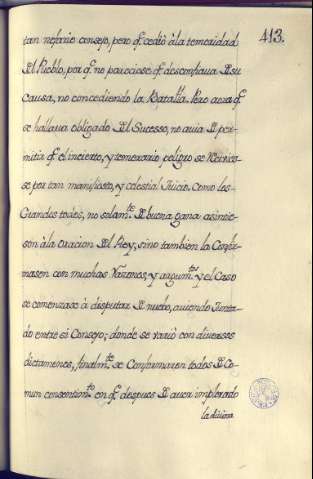 413.
tan nefario consejo, pero q̃. cediò àla temeridad
Dl Pueblo, por q̃. no pareciese q̃. desconfiava D su
causa, no concediendo la Batalla. Pero aora q̃.
se hallava obligado Dl Suceso, no avia D per-
mitir q̃. el incierto, y temerario peligro se
se por tan manifiesto, y celestial Juicio. Como los
Grandes todos, no solamte. D buena gana asintie-
son àla oracion Dl Rey, sino tambien la Confir-
masen con muchas Razones, y argumtos. y el Caso
se comenzase à disputar D nuevo, aviendo Junta-
do entre sì Consejo; donde se variò con diversos
dictamenes, finalmte. se Conformaron todos D Co-
mun consentimto. en q̃. despues D aver implorado
la divina